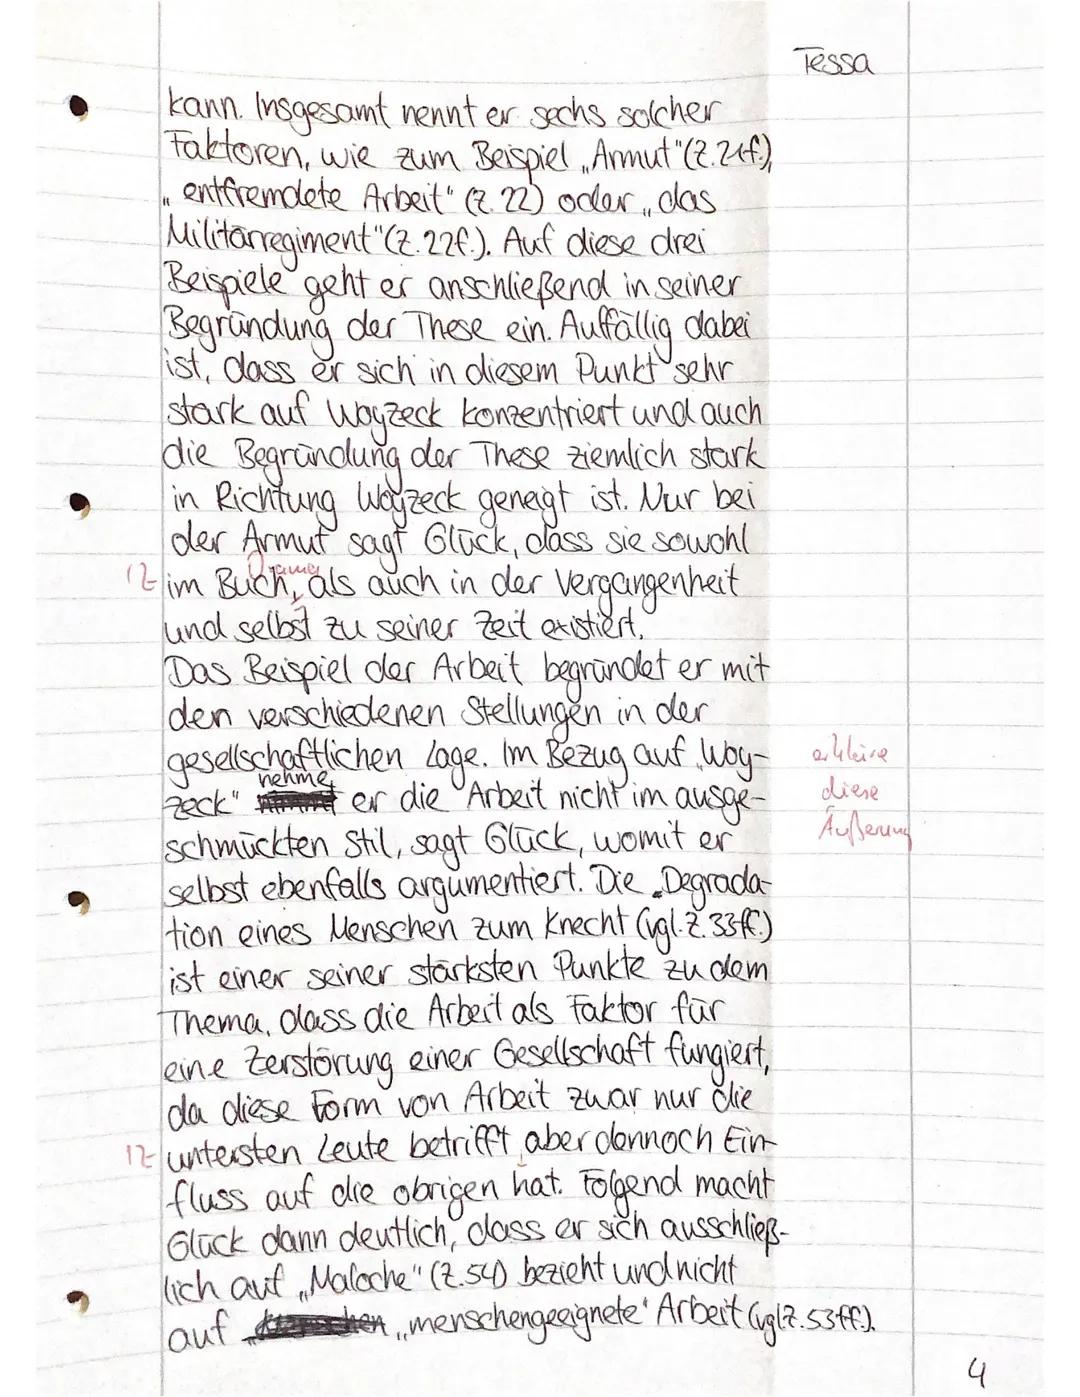 Tessa
kann. Insgesamt nennt er sechs solcher
Faktoren, wie zum Beispiel „Armut" (Z.21f.),
„entfremdete Arbeit" (Z. 22) oder „das
Militärregiment" (Z.22f.). Auf diese drei
Beispiele geht er anschließend in seiner
Begründung der These ein. Auffällig dabei
ist, dass er sich in diesem Punkt sehr
stark auf Woyzeck konzentriert und auch
die Begründung der These ziemlich stark
in Richtung Woyzeck geneigt ist. Nur bei
der Armut sagt Glück, dass sie sowohl
Drama
1Z im Buch, als auch in der Vergangenheit
und selbst zu seiner Zeit existiert.
Das Beispiel der Arbeit begründet er mit
den verschiedenen Stellungen in der
gesellschaftlichen Lage. Im Bezug auf „Woy-
erkläre
diese
Äußerung
nehme
zeck" er die Arbeit nicht im ausge-
schmückten Stil, sagt Glück, womit er
selbst ebenfalls argumentiert. Die „Degrada-
tion eines Menschen zum Knecht (vgl. Z. 33ff.)
ist einer seiner stärksten Punkte zu dem
Thema, dass die Arbeit als Faktor für
eine Zerstörung einer Gesellschaft fungiert,
da diese Form von Arbeit zwar nur die
1Z untersten Leute betrifft, aber dennoch Ein-
fluss auf die obrigen hat. Folgend macht
Glück dann deutlich, dass er sich ausschließ-
lich auf „Maloche" (Z.54) bezieht und nicht
auf „menschengeeignete" Arbeit (vgl Z. 53ff.).
4